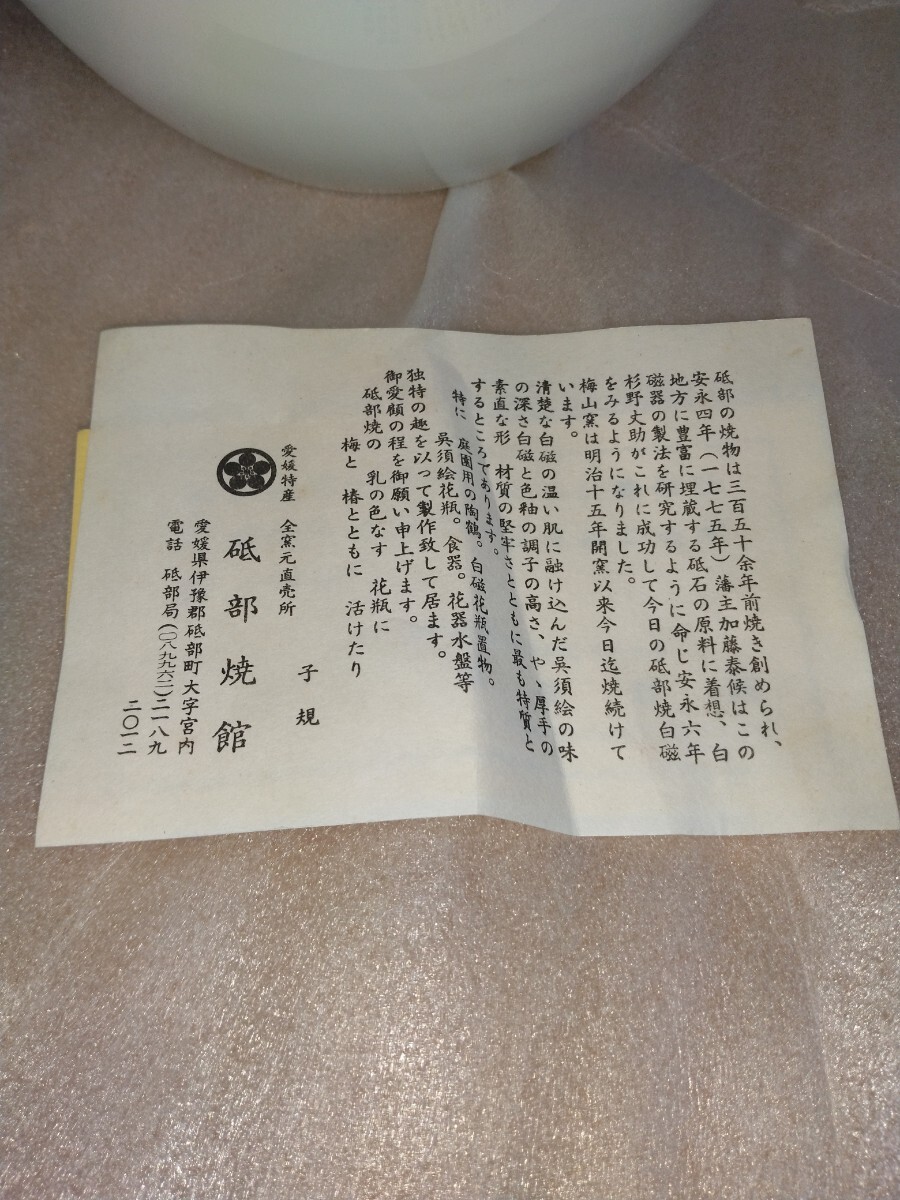 砥部の焼物は三百五十余年前焼き創められ、
安永四年（一七七五年）藩主加藤泰候はこの
地方に豊富に埋蔵する砥石の原料に着想、白
磁器の製法を研究するように命じ安永六年
杉野丈助がこれに成功して今日の砥部焼白磁
をみるようになりました。
梅山窯は明治十五年開窯以来今日迄焼続けて
います。
清楚な白磁の温い肌に融け込んだ呉須絵の味
の深さ白磁と色釉の調子の高さ、やゝ厚手の
素直な形　材質の堅牢さとともに最も特質と
するところであります。
特に　庭園用の陶鶴。白磁花瓶置物。
呉須絵花瓶。食器。花器水盤等
独特の趣を以って製作致して居ます。
御愛顧の程を御願い申上げます。
砥部焼の　乳の色なす　花瓶に
梅と　椿とともに　活けたり
子規
愛媛特産　全窯元直売所
砥部焼館
愛媛県伊豫郡砥部町大字宮内
電話　砥部局(〇八九九六二)二一八九
二〇一二